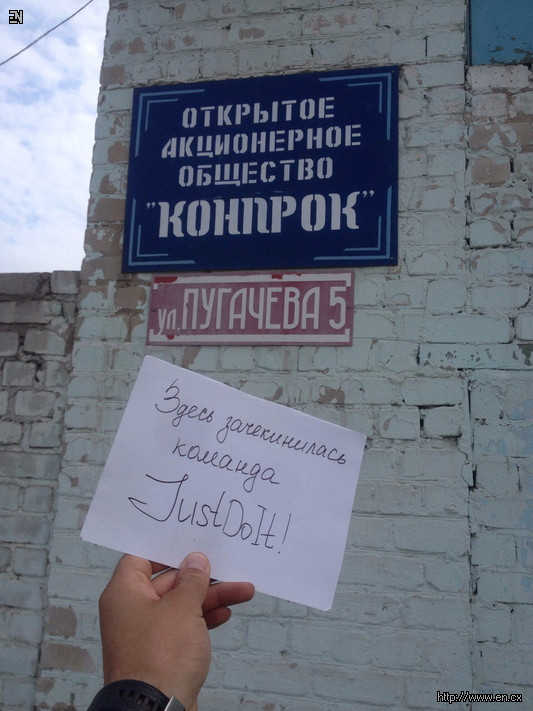 EN
ОТКРЫТОЕ
АКЦИОНЕРНОЕ
ОБЩЕСТВО
"КОНПРОК"
ул. ПУГАЧЕВА 5
Здесь зачекинилась
команда
JustDoIt!
http://www.en.cx